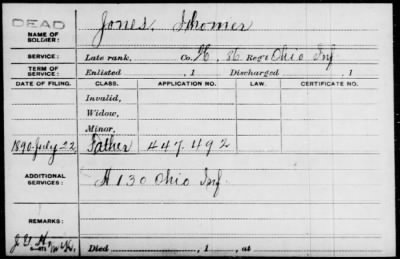 DEAD
NAME OF SOLDIER: Jones,
SERVICE: Late rank, Co. H, 86 Reg't Ohio Inf
TERM OF SERVICE: Enlisted , 1 Discharged , 1
DATE OF FILING. CLASS. APPLICATION NO. LAW. CERTIFICATE NO.
Invalid,
Widow,
Minor,
1890-July-22 Father 447.492
ADDITIONAL SERVICES: H 130 Ohio Inf
REMARKS:
Died , 1 , at